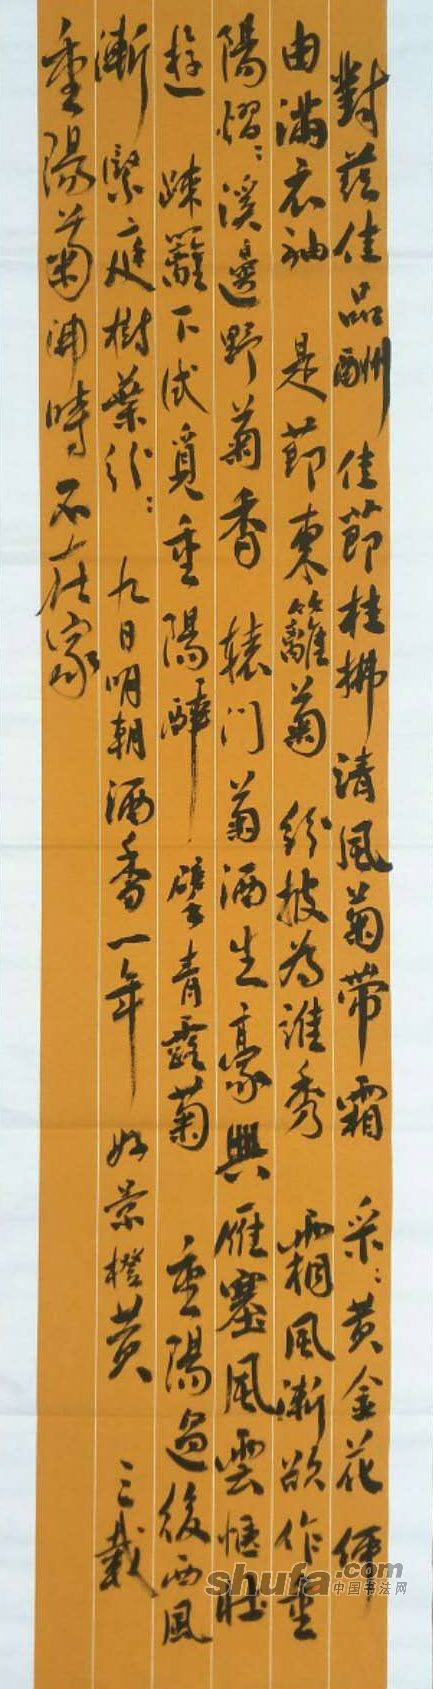 對茲佳品酬佳節桂拂清風菊帶霜 采々黃金花何
由滿衣袖 是節東籬菊 紛披為誰秀 霜風漸欲作重
陽熠々溪邊野菊香 轅門菊酒生豪興雁塞風雲愜壯
遊 疎籬下試覓重陽醉擘青露菊 重陽過後西風
漸緊庭樹葉紛々 九日明朝酒香一年好景橙黃 三載
重陽菊開時不在家
shufa.com
中国书法网